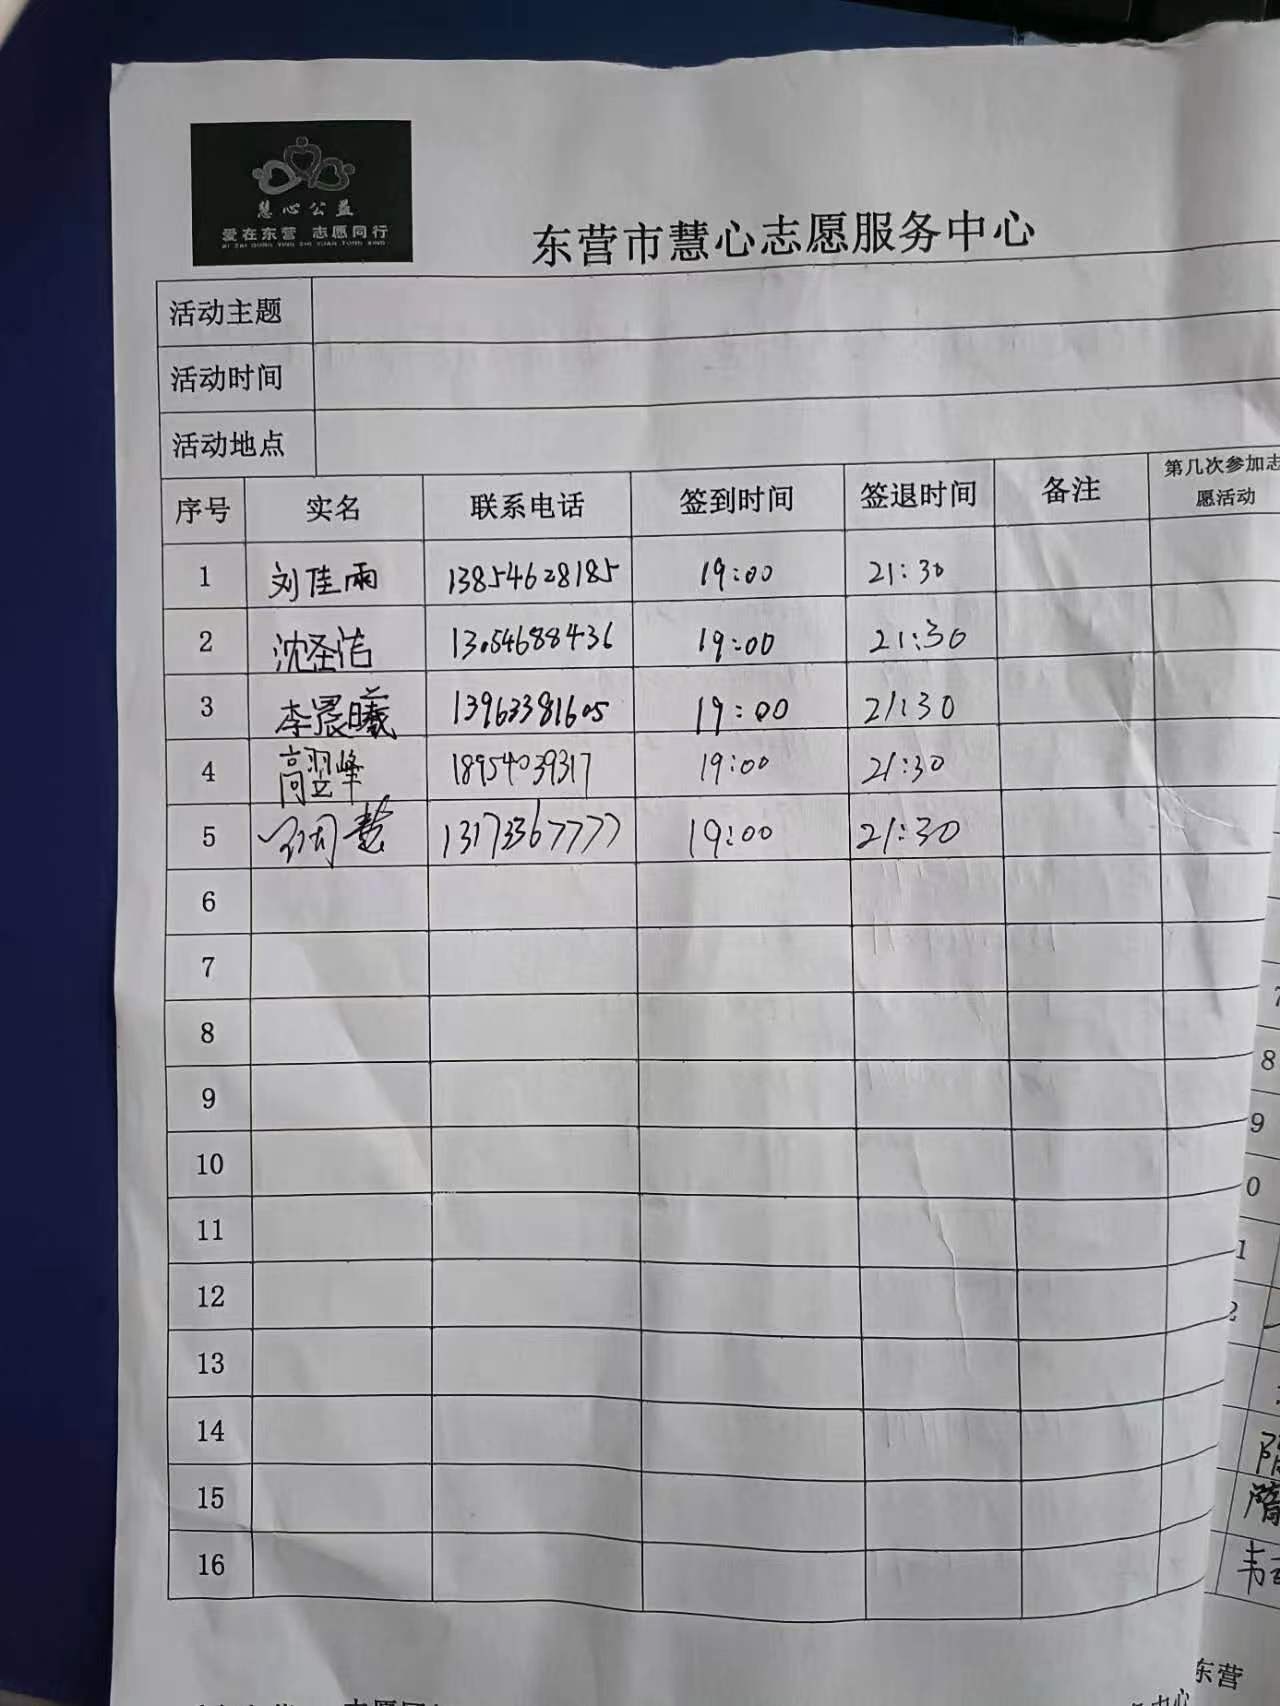 慧心公益
爱在东营 志愿同行
AI ZAI DONG YING ZHI YUAN TONG XING
东营市慧心志愿服务中心
活动主题
活动时间
活动地点
序号 实名 联系电话 签到时间 签退时间 备注 第几次参加志
愿活动
1 刘佳雨 13854628185 19:00 21:30
2 沈圣洁 13054688436 19:00 21:30
3 李晨曦 13963381605 19:00 21:30
4 高翌峰 18954039317 19:00 21:30
5 慧 13173367777 19:00 21:30
6
7
8
9
10
11
12
13
14
15
16
7
8
9
0
1
2
韦
东营
中心